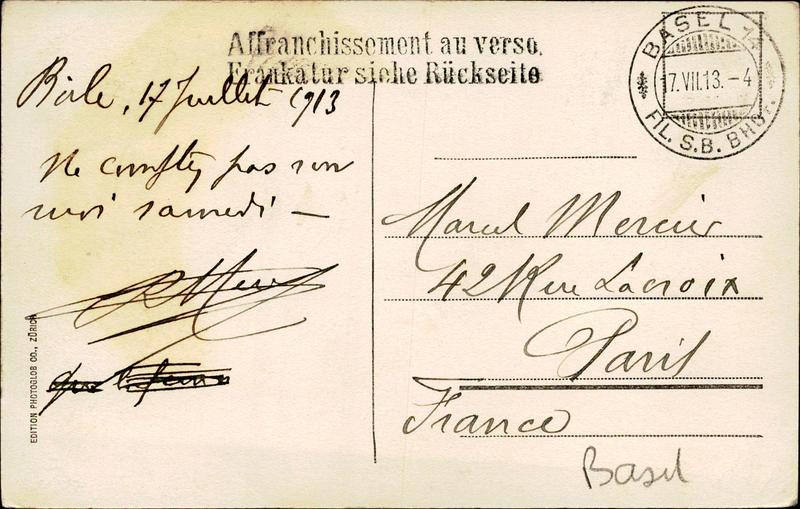 Affranchissement au verso.
Frankatur siehe Rückseite
BASEL 17.VII.13.-4
FIL. S.B. BHOF.
Bâle, 17 Juillet 1913
Ne comptez pas sur
moi samedi —
Marcel Mercier
42 Rue Lacroix
Paris
France
Basel
EDITION PHOTOGLOB CO., ZÜRICH